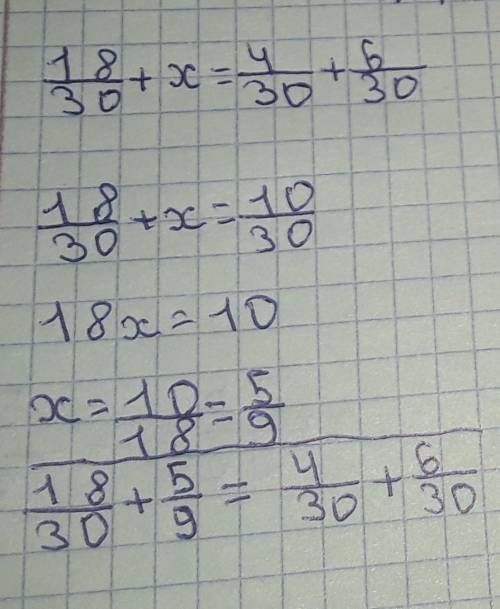 18/30 + x = 4/30 + 6/30
18/30 + x = 10/30
18x = 10
x = 10/18 = 5/9
18/30 + 5/9 = 4/30 + 6/30